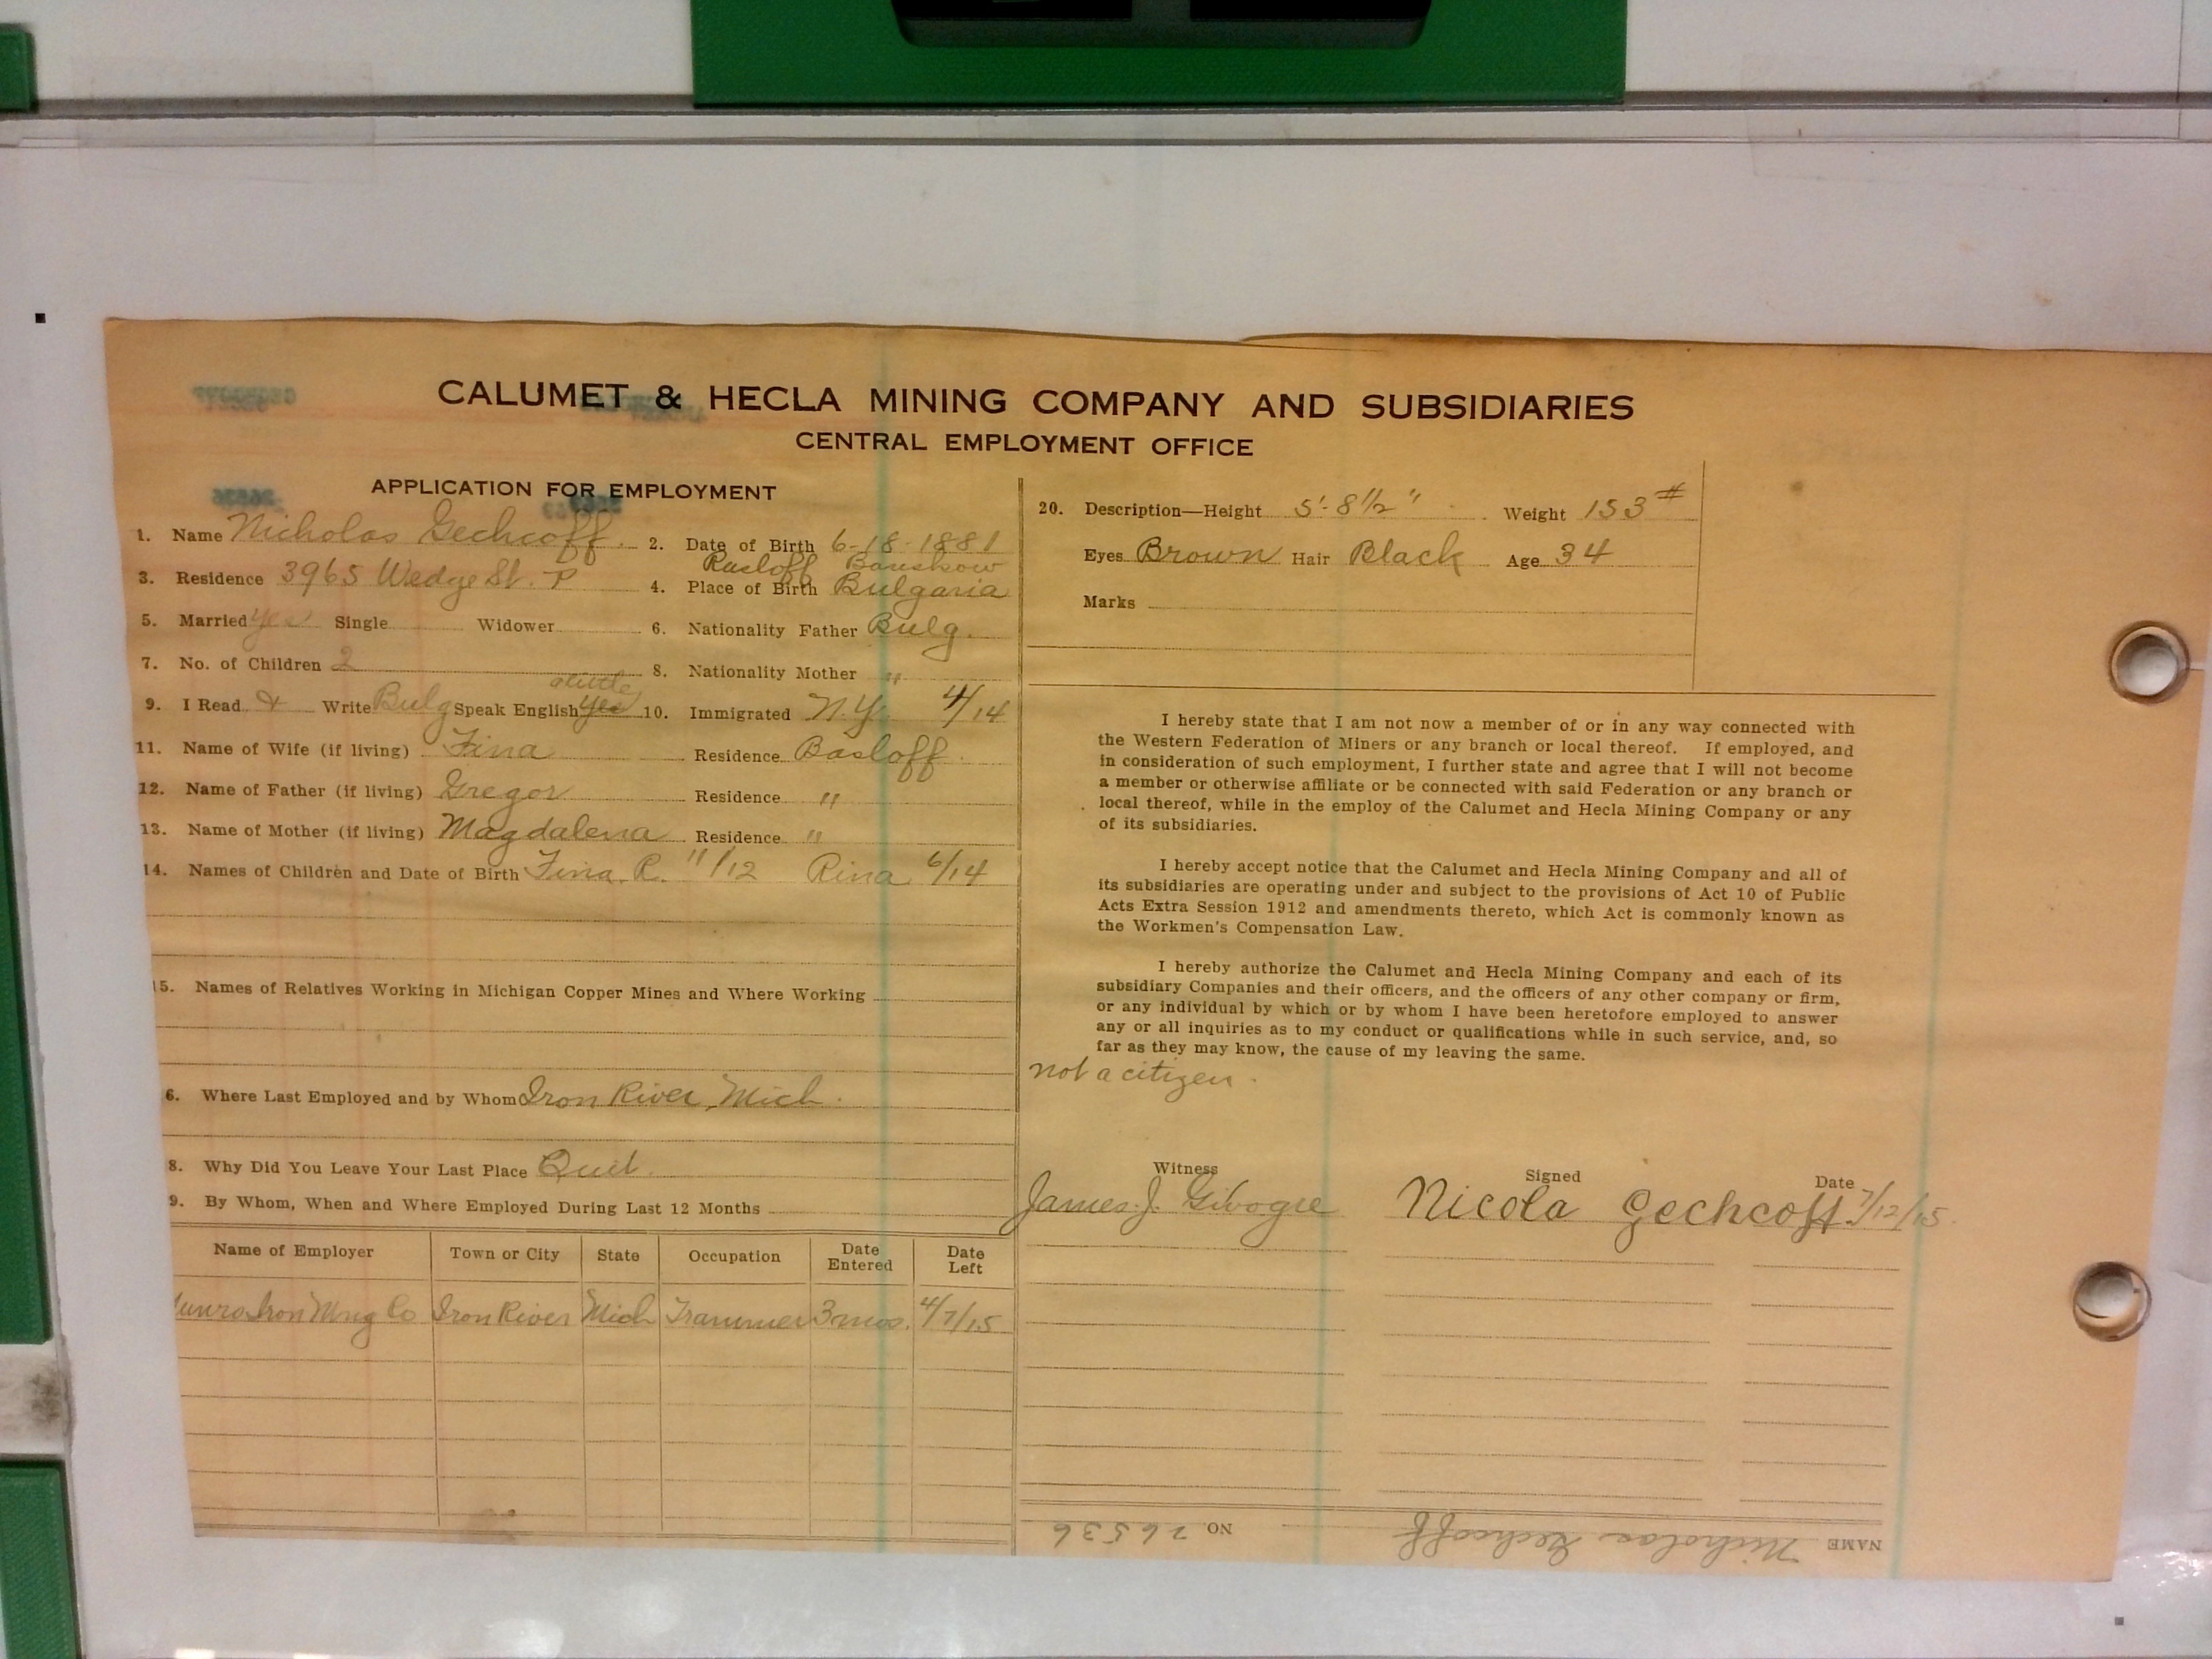 CALUMET & HECLA MINING COMPANY AND SUBSIDIARIES
CENTRAL EMPLOYMENT OFFICE
APPLICATION FOR EMPLOYMENT
1. Name Nicholas Gechcoff. 2. Date of Birth 6-18-1881
Rasloff Banskow
3. Residence 3965 Wedge St. P 4. Place of Birth Bulgaria
5. Married Yes Single Widower 6. Nationality Father Bulg.
7. No. of Children 2 8. Nationality Mother "
a little
9. I Read & Write Bulg Speak English Yes 10. Immigrated N.Y. 4/14
11. Name of Wife (if living) Fina Residence Basloff
12. Name of Father (if living) Gregor Residence "
13. Name of Mother (if living) Magdalena Residence "
14. Names of Children and Date of Birth Fina R. 11/12 Rina 6/14
15. Names of Relatives Working in Michigan Copper Mines and Where Working
6. Where Last Employed and by Whom Iron River, Mich.
8. Why Did You Leave Your Last Place Quit.
9. By Whom, When and Where Employed During Last 12 Months
Name of Employer Town or City State Occupation Date Entered Date Left
Iron Mng Co Iron River Mich Trammer 3 mos. 4/7/15
20. Description—Height 5'-8 1/2" Weight 153#
Eyes Brown Hair Black Age 34
Marks
I hereby state that I am not now a member of or in any way connected with
the Western Federation of Miners or any branch or local thereof. If employed, and
in consideration of such employment, I further state and agree that I will not become
a member or otherwise affiliate or be connected with said Federation or any branch or
local thereof, while in the employ of the Calumet and Hecla Mining Company or any
of its subsidiaries.
I hereby accept notice that the Calumet and Hecla Mining Company and all of
its subsidiaries are operating under and subject to the provisions of Act 10 of Public
Acts Extra Session 1912 and amendments thereto, which Act is commonly known as
the Workmen's Compensation Law.
I hereby authorize the Calumet and Hecla Mining Company and each of its
subsidiary Companies and their officers, and the officers of any other company or firm,
or any individual by which or by whom I have been heretofore employed to answer
any or all inquiries as to my conduct or qualifications while in such service, and, so
far as they may know, the cause of my leaving the same.
not a citizen.
Witness Signed Date
James J. Nicola Gechcoff. 7/12/15
NAME Nicholas Gechcoff NO. 26536